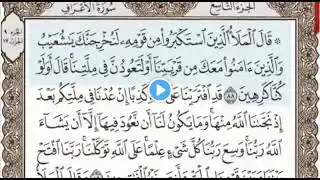 الجزء التاسع سورة الأعراف
۞ قَالَ ٱلْمَلَأُ ٱلَّذِينَ ٱسْتَكْبَرُوا۟ مِن قَوْمِهِۦ لَنُخْرِجَنَّكَ يَٰشُعَيْبُ
وَٱلَّذِينَ ءَامَنُوا۟ مَعَكَ مِن قَرْيَتِنَآ أَوْ لَتَعُودُنَّ فِى مِلَّتِنَا ۚ قَالَ أَوَلَوْ
كُنَّا كَٰرِهِينَ ٨٨ قَدِ ٱفْتَرَيْنَا عَلَى كَذِبًا إِنْ عُدْنَا فِى مِلَّتِكُم بَعْدَ
إِذْ نَجَّىٰنَا ٱللَّهُ مِنْهَا ۚ وَمَا يَكُونُ لَنَآ أَن نَّعُودَ فِيهَآ إِلَّآ أَن يَشَآءَ
ٱللَّهُ رَبُّنَا ۚ وَسِعَ رَبُّنَا كُلَّ شَىْءٍ عِلْمًا ۚ عَلَى ٱللَّهِ تَوَكَّلْنَا ۚ رَبَّنَا ٱفْتَحْ